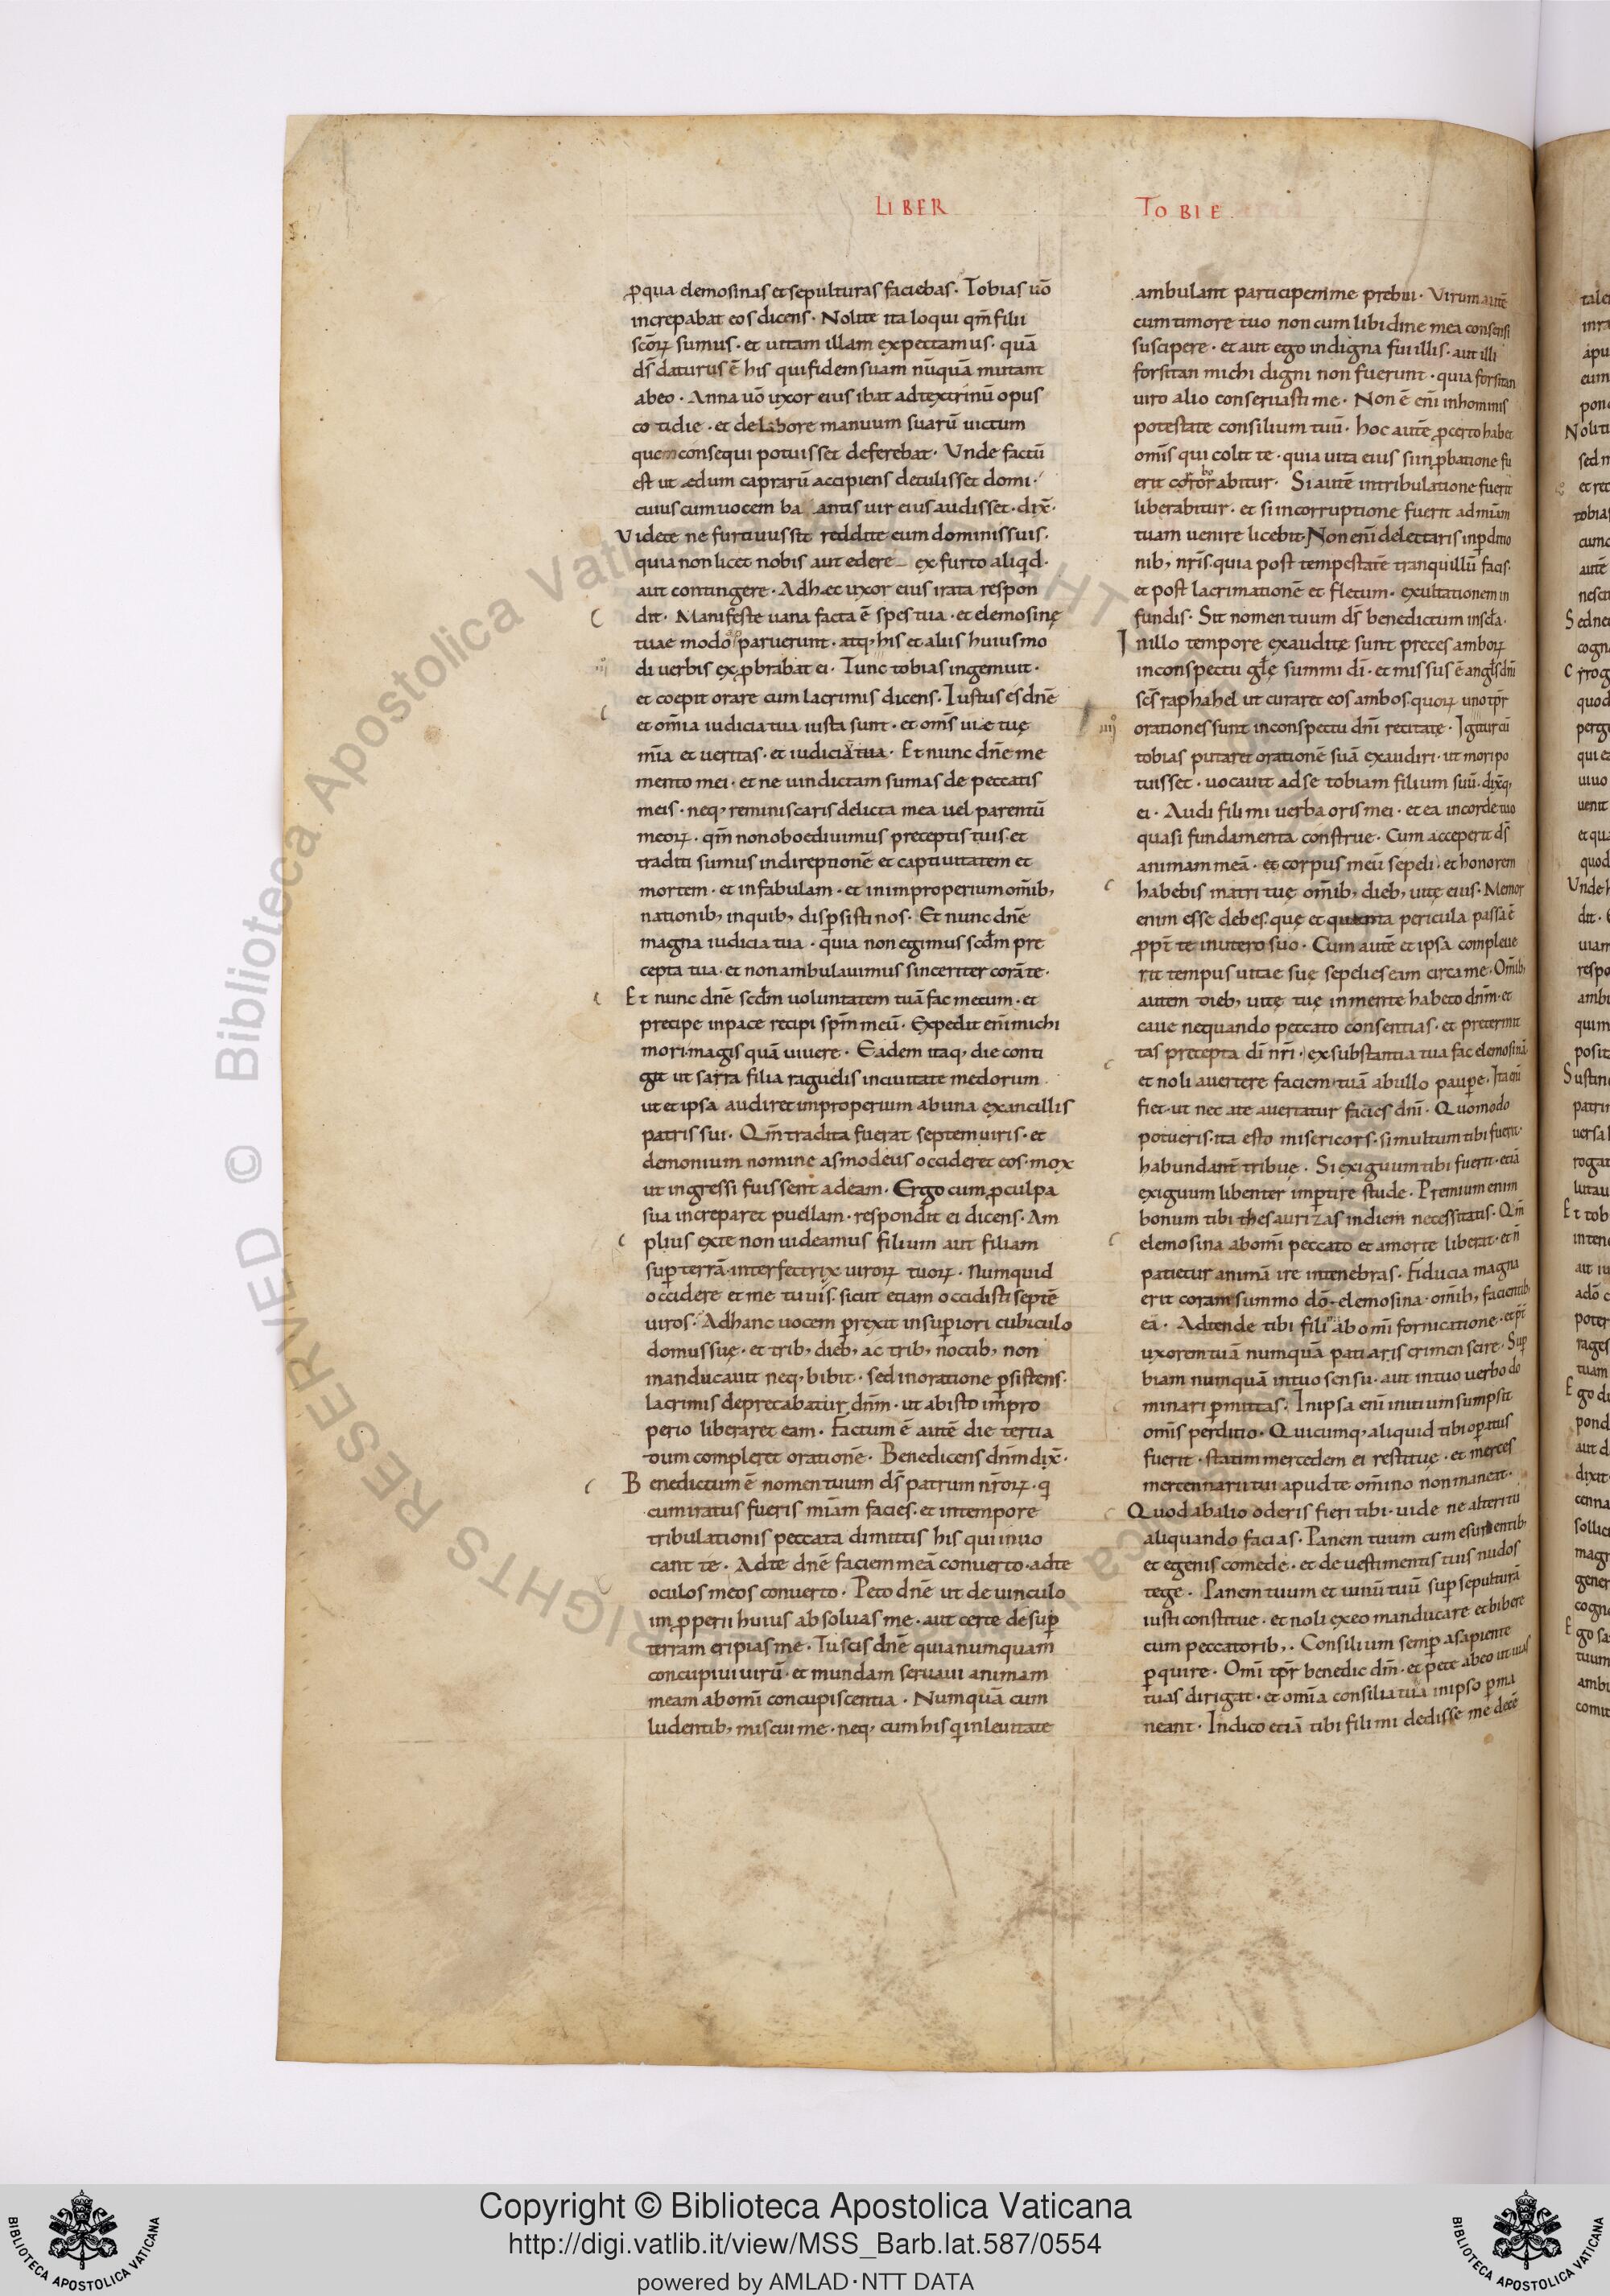 LIBER
TOBIE
ꝑqua elemosinas et sepulturas faciebas· Tobias uō
increpabat eos dicens· Nolite ita loqui qm̄ filii
scōꝝ sumus· et uitam illam expectamus· quā
ds̄ daturus ē his qui fidem suam nūquā mutant
abeo· Anna uō uxor eius ibat adtextrinū opus
cotidie· et delabore manuum suarū uictum
quem consequi potuisset deferebat· Unde factū
est ut ædum caprarū accipiens detulisset domi·
cuius cum uocem ba antis uir eius audisset· dix̄·
Videte ne furtiuus sit reddite eum dominis suis·
quia non licet nobis aut edere ex furto aliqid·
aut contingere· Adhæc uxor eius irata respon
dit· Manifeste uana facta ē spes tua· et elemosinę
tuae modo paruerunt· atq; his et aliis huiusmo
di uerbis exꝓbrabat ei· Tunc tobias ingemuit·
et coepit orare cum lacrimis dicens· Iustus es dnē
et om̄ia iudicia tua iusta sunt· et om̄s uię tuę
mīa et ueritas· et iudicia tua· Et nunc dnē me
mento mei· et ne uindictam sumas de peccatis
meis· neq; reminiscaris delicta mea uel parentū
meoꝝ· qm̄ non oboediuimus preceptis tuis· et
traditi sumus indireptionē et captiuitatem et
mortem· et infabulam· et inimproperium om̄ib;
nationib; inquib; disꝑsisti nos· Et nunc dnē
magna iudicia tua· quia non egimus scdm̄ pre
cepta tua· et non ambulauimus sinceriter corā te·
Et nunc dnē scdm̄ uoluntatem tuā fac mecum· et
precipe inpace recipi spm̄ meū· Expedit enī michi
mori magis quā uiuere· Eadem itaq; die conti
git ut sarra filia raguelis inciuitate medorum
ut et ipsa audiret improperium abuna exancillis
patris sui· Qm̄ tradita fuerat septem uiris· et
demonium nomine asmodeus occideret eos· mox
ut ingressi fuissent adeam· Ergo cum ꝓculpa
sua increparet puellam· respondit ei dicens· Am
plius exte non uideamus filium aut filiam
suꝑ terrā· interfectrix uiroꝝ tuoꝝ· Numquid
occidere et me tu uis· sicut etiam occidisti septē
uiros· Adhanc uocem ꝑrexit insuꝑiori cubiculo
domus suę· et trib; dieb; ac trib; noctib; non
manducauit neq; bibit· sed inoratione ꝑsistens·
lacrimis deprecabatur dnm̄· ut abisto impro
perio liberaret eam· Factum ē autē die tertia
dum compleret orationē· Benedicens dnm̄ dix̄·
Benedictum ē nomen tuum ds̄ patrum nr̄oꝝ· q
cum iratus fueris miam̄ facies· et intempore
tribulationis peccata dimittis his qui inuo
cant te· Adte dnē faciem meā conuerto· adte
oculos meos conuerto· Peto dnē ut de uinculo
imꝓperii huius absoluas me· aut certe desuꝑ
terram eripias me· Tu scis dnē quia numquam
concupiui uirū· et mundam seruaui animam
meam abomī concupiscentia· Numquā cum
ludentib; miscui me· neq; cum his q inleuitate
ambulant participem me prebui· Virum autē
cum timore tuo non cum libidine mea consensi
suscipere· et aut ego indigna fui illis· aut illi
forsitan michi digni non fuerunt· quia forsitan
uiro alio conseruasti me· Non ē enī inhominis
potestate consilium tuū· hoc autē ꝓcerto habet
omīs qui colit te· quia uita eius si inꝓbatione fu
erit abitur· Si autē intribulatione fuerit
liberabitur· et si incorruptione fuerit ad mīam
tuam uenire licebit· Non enī delectaris inꝑditio
nib; nr̄is· quia post tempestatē tranquillū facis·
et post lacrimationē et fletum· exultationem in
fundis· Sit nomen tuum ds̄ benedictum inscla·
Inillo tempore exauditę sunt preces amboꝝ
inconspectu glę summi dī· et missus ē angls dnī
scs̄ raphahel ut curaret eos ambos· quoꝝ uno tpr̄
orationes sunt inconspectu dnī recitatę· Igitur cū
tobias putaret orationē suā exaudiri· ut mori po
tuisset· uocauit adse tobiam filium suū· dixq;
ei· Audi fili mi uerba oris mei· et ea incorde tuo
quasi fundamenta construe· Cum acceperit ds̄
animam meā· et corpus meū sepeli· et honorem
habebis matri tuę om̄ib; dieb; uitę eius· Memor
enim esse debes· quę et quanta pericula passa ē
ꝓpt̄ te inutero suo· Cum autē et ipsa compleue
rit tempus uitae suę sepelies eam circa me· Om̄ib;
autem dieb; uitę tuę inmente habeto dnm̄· et
caue nequando peccato consentias· et pretermit
tas precepta dī nrī· ex substantia tua fac elemosinā
et noli auertere faciem tuā abullo pauꝑe· Ita enī
fiet· ut nec ate auertatur facies dnī· Quomodo
potueris· ita esto misericors· si multum tibi fuerit·
habundant̄ tribue· Si exiguum tibi fuerit· etiā
exiguum libenter imꝑtire stude· Premium enim
bonum tibi thesaurizas indiem necessitatis· Qm̄
elemosina abomī peccato et amorte liberat· et n̄
patietur animā ire intenebras· Fiducia magna
erit coram summo dō· elemosina· om̄ib; facientib;
eā· Adtende tibi fili abomī fornicatione· et p̄t
uxorem tuā numquā patiaris crimen scire· Suꝑ
biam numquā intuo sensu· aut intuo uerbo do
minari ꝑmittas· Inipsa enī initium sumpsit
omīs perditio· Quicumq; aliquid tibi oꝑatus
fuerit· statim mercedem ei restitue· et merces
mercennarii tui apud te omīno non maneat·
Quod abalio oderis fieri tibi· uide ne alteri tu
aliquando facias· Panem tuum cum esurientib;
et egenis comede· et de uestimentis tuis nudos
tege· Panem tuum et uinū tuū suꝑ sepulturā
iusti constitue· et noli exeo manducare et bibere
cum peccatorib;· Consilium semꝑ asapiente
ꝑquire· Omī tpr̄ benedic dm̄· et pete abeo ut uias
tuas dirigat· et om̄ia consilia tua inipso ꝑma
neant· Indico etiā tibi fili mi dedisse me decē
Copyright © Biblioteca Apostolica Vaticana
http://digi.vatlib.it/view/MSS_Barb.lat.587/0554
powered by AMLAD·NTT DATA